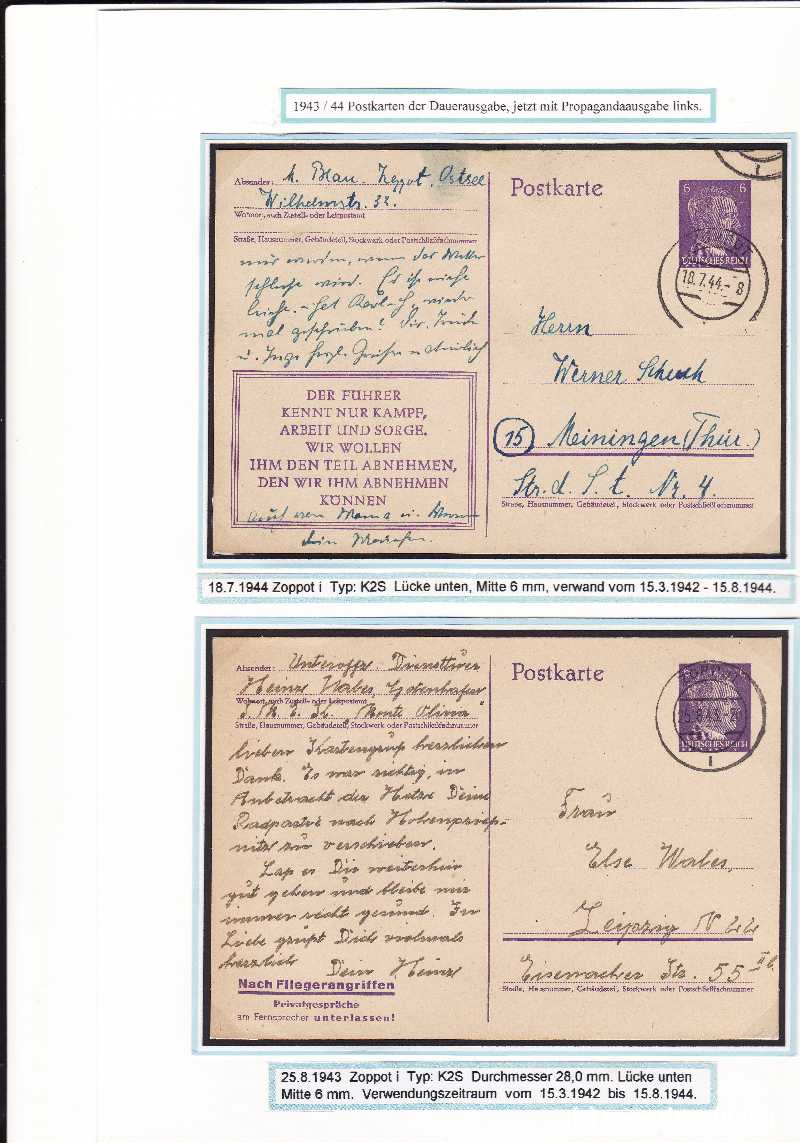 1943 / 44 Postkarten der Dauerausgabe, jetzt mit Propagandaausgabe links.
Absender: A. Blau. Zoppot, Ostsee
Wilhelmstr. 32.
Wohnort, auch Zustell- oder Leitpostamt
Straße, Hausnummer, Gebäudeteil, Stockwerk oder Postschließfachnummer
wenn das Wetter
wird. Es ist
wieder
mal geschrieben?
u. Inge herzl. Grüße
DER FÜHRER
KENNT NUR KAMPF,
ARBEIT UND SORGE.
WIR WOLLEN
IHM DEN TEIL ABNEHMEN,
DEN WIR IHM ABNEHMEN
KÖNNEN
Auch von Mama u.
dein
Postkarte
6 6
DEUTSCHES REICH
18.7.44.- 8
i
Herrn
Werner
15 Meiningen (Thür.)
Str. d. S. A. Nr. 4.
Straße, Hausnummer, Gebäudeteil, Stockwerk oder Postschließfachnummer
18.7.1944 Zoppot i Typ: K2S Lücke unten, Mitte 6 mm, verwand vom 15.3.1942 - 15.8.1944.
Absender: Unteroffz.
Heinz Wabes, Gotenhafen
"Monte Olivia"
Wohnort, auch Zustell- oder Leitpostamt
Straße, Hausnummer, Gebäudeteil, Stockwerk oder Postschließfachnummer
lieben Kartengruß herzlichen
Dank. Es war richtig, in
Anbetracht der Hitze Deine
Radpartie nach Hohenprieß-
nitz zu verschieben.
Laß es Dir weiterhin
gut gehen und bleibe mir
immer recht gesund. In
Liebe grüßt Dich vielmals
herzlich Dein Heinz
Nach Fliegerangriffen
Privatgespräche
am Fernsprecher unterlassen!
Postkarte
DEUTSCHES REICH
i
Frau
Else Wabes,
Leipzig N 22
Eisenacher Str. 55 II b.
Straße, Hausnummer, Gebäudeteil, Stockwerk oder Postschließfachnummer
25.8.1943 Zoppot i Typ: K2S Durchmesser 28,0 mm. Lücke unten
Mitte 6 mm. Verwendungszeitraum vom 15.3.1942 bis 15.8.1944.